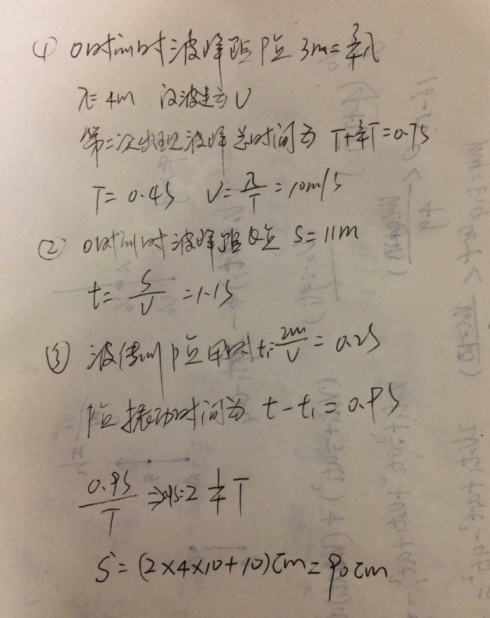 ① 0时刻时波峰距P点 3m=¾λ
λ=4m 设波速为V
第二次出现波峰总时间为 T+¾T=0.7s
T=0.4s V=λ/T=10m/s
② 0时刻时波峰距Q点 S=11m
t=S/V=1.1s
③ 波传到P点用时 t₁=2m/V=0.2s
P点振动时间为 t-t₁=0.9s
0.9s/T 2¼T
S=(2×4×10+10)cm=90cm